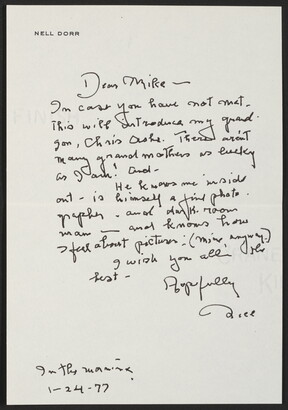 NELL DORR
Dear Mike —
In case you have not met -
this will introduce my grand-
son, Chris Ashe. There aren't
many grandmothers as lucky
as I am! And -
He knows me inside
out - is himself a fine photo-
grapher - and dark room
man — and knows how
I feel about pictures - (mine, anyway.)
I wish you all the
best -
Hopefully
Nell
In the morning
1-24-77